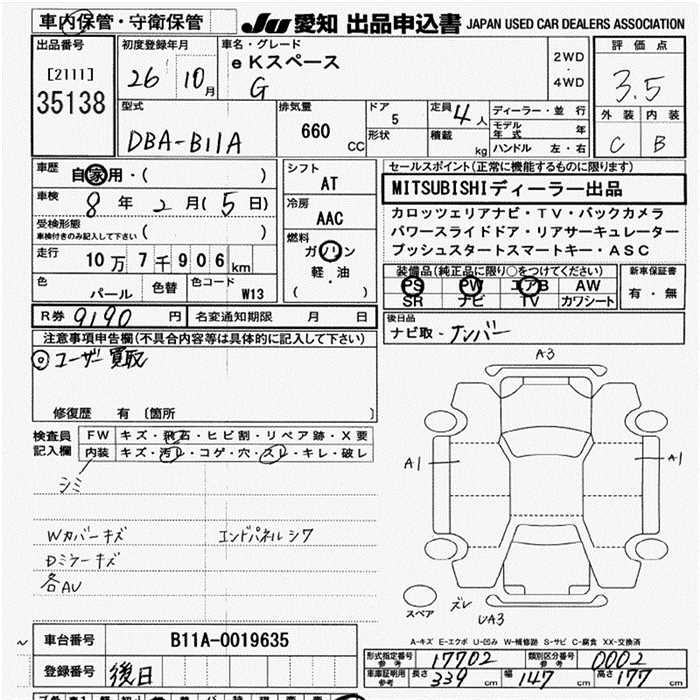 車内保管・守衛保管
JU 愛知 出品申込書 JAPAN USED CAR DEALERS ASSOCIATION
出品番号
[2111]
35138
初度登録年月
26 10月
車名・グレード
eKスペース
G
2WD
・
4WD
評価点
3.5
外装 内装
C B
型式
DBA-B11A
排気量
660 CC
ドア
5
形状
定員 4人
積載 kg
ディーラー・並行
モデル年式 年
ハンドル 左・右
車歴 自家用・( )
車検 8年 2月(5日)
受検形態
車検付きのみ記入して下さい ( )
走行 10万7千906km
色 パール 色替 色コード W13
シフト
AT
冷房
AAC
燃料
ガソリン
軽・油
( )
セールスポイント(正常に機能するものに限ります)
MITSUBISHIディーラー出品
カロッツェリアナビ・TV・バックカメラ
パワースライドドア・リアサーキュレーター
プッシュスタートスマートキー・ASC
装備品(純正品に限り○をつけてください)
PS PW エアB AW
SR ナビ TV カワシート
新車保証書
有・無
R券 9190円 名変通知期限 月 日
後日品
ナビ取・ナンバー
注意事項申告欄(不具合内容等は具体的に記入して下さい)
ユーザー買取
修復歴 有 〔箇所 〕
検査員記入欄
FW キズ・飛石・ヒビ割・リペア跡・X要
内装 キズ・汚レ・コゲ・穴・スレ・キレ・破レ
シミ
Wカバーキズ エンドパネルシワ
Dミラーキズ
各AU
A3
A1
A1
スペア
ズレ
UA3
A-キズ E-エクボ U-凹み W-補修跡 S-サビ C-腐食 XX-交換済
車台番号 B11A-0019635
登録番号 後日
形式指定番号 参考 17702 類別区分番号 参考 0002
車庫証明用 参考 長さ 339 cm 幅 147 cm 高さ 177 cm